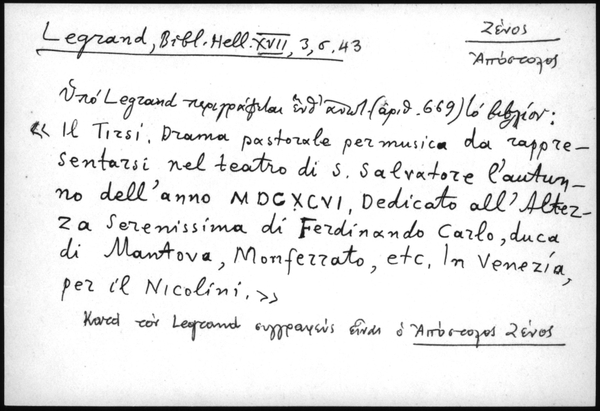 Legrand, Bibl. Hell. XVII, 3, σ. 43
Ζένος
Ἀπόστολος
Ὑπὸ Legrand περιγράφεται ἐνθ' ἀνωτ. (ἀριθ. 669) τὸ βιβλίον:
« Il Tirsi. Drama pastorale per musica da rappre-
sentarsi nel teatro di S. Salvatore l'autun-
no dell'anno MDCXCVI, Dedicato all'Altez-
za Serenissima di Ferdinando Carlo, duca
di Mantova, Monferrato, etc. In Venezia,
per il Nicolini. »
Κατὰ τὸν Legrand συγγραφεὺς εἶναι ὁ Ἀπόστολος Ζένος